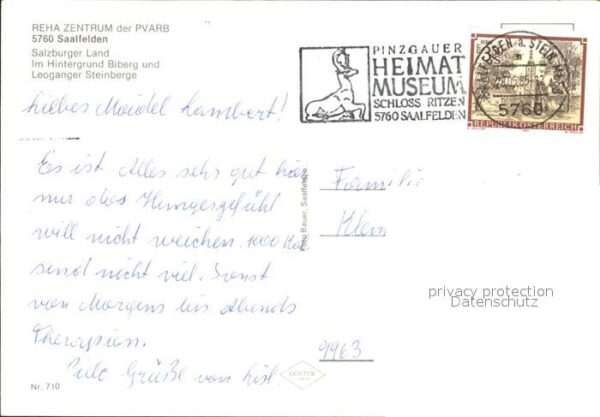 REHA ZENTRUM der PVARB
5760 Saalfelden
Salzburger Land
Im Hintergrund Biberg und
Leoganger Steinberge
PINZGAUER
HEIMAT
MUSEUM
SCHLOSS RITZEN
5760 SAALFELDEN
5760
REPUBLIK ÖSTERREICH
liebes Maidel Lambert!
Es ist Alles sehr gut hier
nur das Hungergefühl
will nicht weichen. 1000 Kal.
sind nicht viel. Sonst
von Morgens bis Abends
Therapien.
Viele Grüße von
Foto Bauer, Saalfelden
Familie
Klein
9963
privacy protection
Datenschutz
Nr. 710